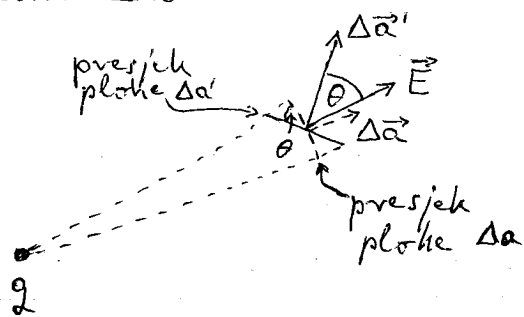 Δa⃗'
presjek
plohe Δa'
θ
E⃗
Δa⃗
θ
presjek
plohe Δa
q